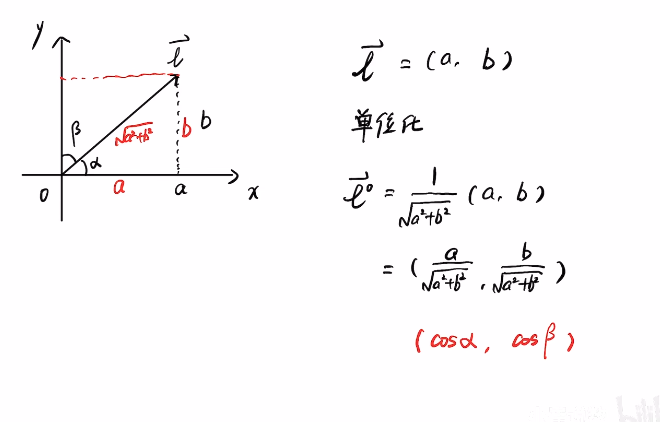 y
l⃗
β
√a²+b²
b b
α
0 a a x
l⃗ = (a, b)
单位化
l⃗⁰ = 1/√a²+b² (a, b)
= (a/√a²+b², b/√a²+b²)
(cosα, cosβ)
bili